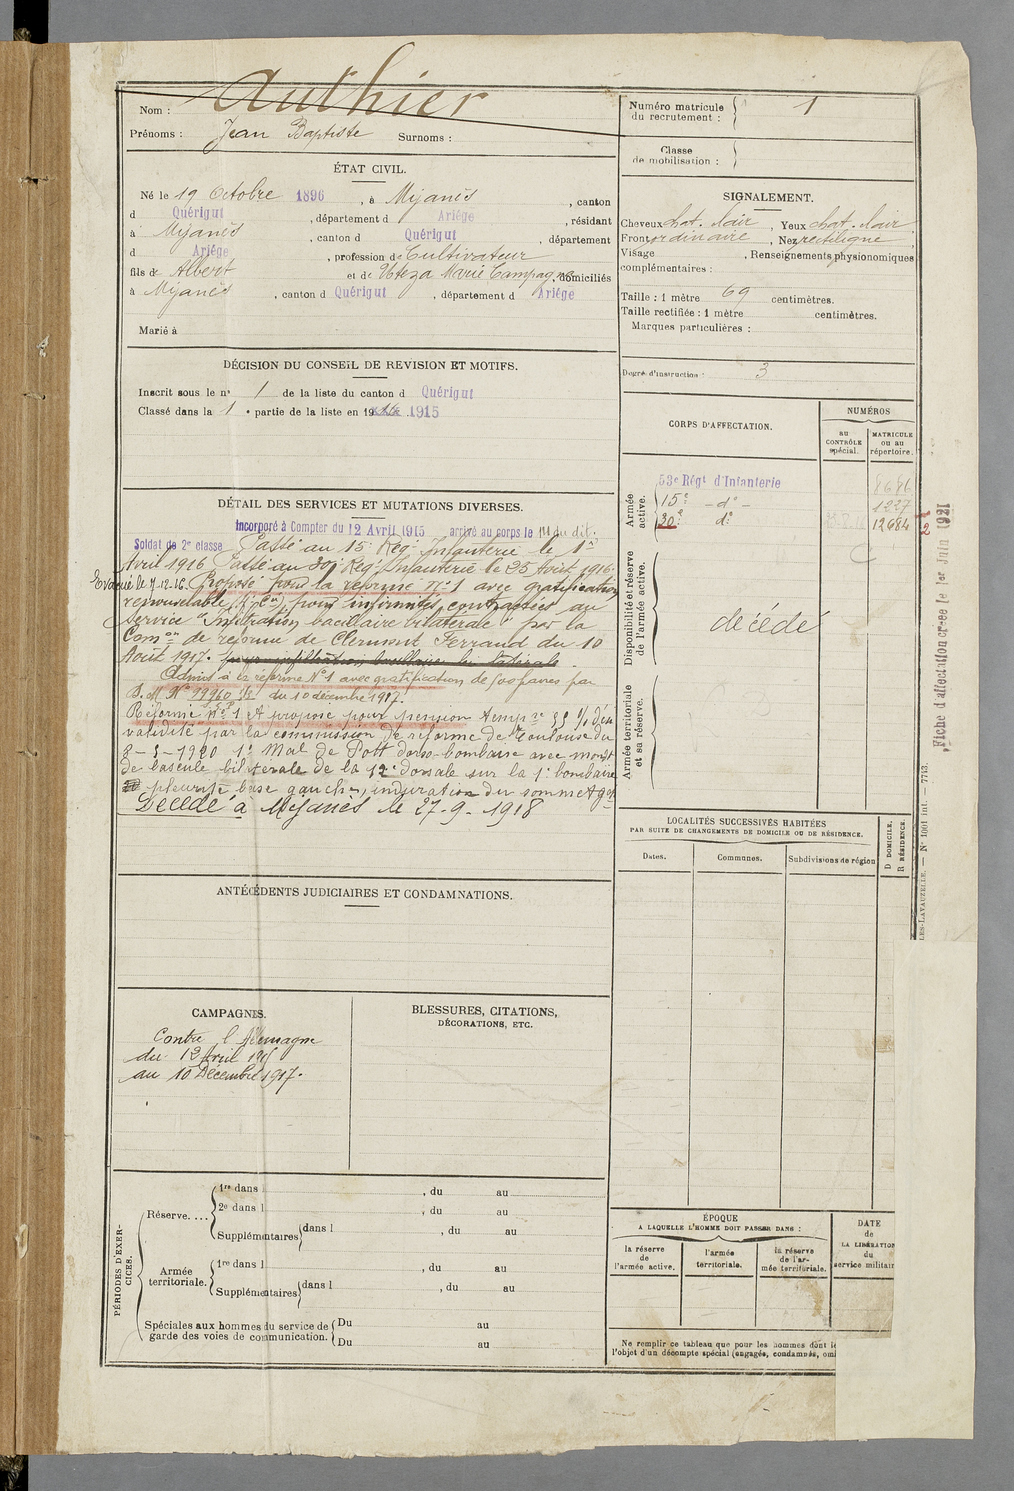 Nom : Authier
Prénoms : Jean Baptiste Surnoms :
Numéro matricule du recrutement : 1
Classe de mobilisation :
ÉTAT CIVIL.
Né le 19 Octobre 1896, à Mijanès, canton
d Quérigut, département d Ariége, résidant
à Mijanès, canton d Quérigut, département
d Ariége, profession de Cultivateur
fils de Albert et de Uteza Marie Campagna, domiciliés
à Mijanès, canton d Quérigut, département d Ariége
Marié à
SIGNALEMENT.
Cheveux chat. clair, Yeux chat. clair
Front ordinaire, Nez rectiligne
Visage, Renseignements physionomiques
complémentaires :
Taille : 1 mètre 69 centimètres.
Taille rectifiée : 1 mètre centimètres.
Marques particulières :
Degré d'instruction : 3
DÉCISION DU CONSEIL DE REVISION ET MOTIFS.
Inscrit sous le n° 1 de la liste du canton d Quérigut
Classé dans la 1e partie de la liste en 1915
CORPS D'AFFECTATION.
NUMÉROS
au CONTRÔLE spécial.
MATRICULE ou au répertoire.
Armée active.
53e Régt d'Infanterie 8686
15e - d° - 1227
30e d° 12684
Disponibilité et réserve de l'armée active.
décédé
Armée territoriale et sa réserve.
DÉTAIL DES SERVICES ET MUTATIONS DIVERSES.
Incorporé à Compter du 12 Avril 1915 arrivé au corps le dit.
Soldat de 2e classe Passé au 15e Rég. Infanterie le 1er
Avril 1916 Passé au 30e Rég. Infanterie le 25 Août 1916.
Evacué le 7-12-16. Proposé pour la réforme N° 1 avec gratification
renouvelable pour infirmités contractées au
service "Infiltration bacillaire bilatérale" par la
Comon de réforme de Clermont Ferrand du 10
Août 1917. pour infiltration bacillaire bi-latérale.
Admis à la réforme N° 1 avec gratification de 500 francs par
D. M. N° 19960 du 10 décembre 1917.
Réformé n° 1 et proposé pour pension temp.re
validité par la commission de réforme de Toulouse du
8-5-1920 1° Mal de Pott dorso-lombaire avec
de bascule bilatérale de la 12e dorsale sur la 1e lombaire
2° pleurite base gauche, induration du sommet
Décédé à Mijanès le 27-9-1918
LOCALITÉS SUCCESSIVES HABITÉES
PAR SUITE DE CHANGEMENTS DE DOMICILE OU DE RÉSIDENCE.
Dates. Communes. Subdivisions de région
D DOMICILE. R RÉSIDENCE.
ANTÉCÉDENTS JUDICIAIRES ET CONDAMNATIONS.
CAMPAGNES.
Contre l'Allemagne
du 12 Avril 1915
au 10 Décembre 1917.
BLESSURES, CITATIONS,
DÉCORATIONS, ETC.
PÉRIODES D'EXERCICES.
Réserve.... 1re dans l , du au
2e dans l , du au
Supplémentaires dans l , du au
Armée territoriale. 1re dans l , du au
Supplémentaires dans l , du au
Spéciales aux hommes du service de garde des voies de communication. Du au
Du au
ÉPOQUE
A LAQUELLE L'HOMME DOIT PASSER DANS :
la réserve de l'armée active.
l'armée territoriale.
la réserve de l'armée territoriale.
DATE de LA LIBÉRATION du service militair
Ne remplir ce tableau que pour les hommes dont
l'objet d'un décompte spécial (engagés, condamnés, omi
Fiche d'affectation créée le 1er Juin 1921
LES-LAVAUZELLE. — N° 1001 int. — 7713.